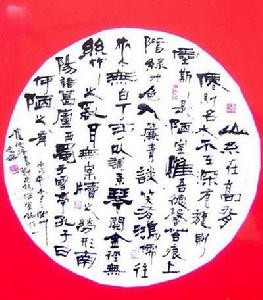 山不在高有
仙則名水不在深有龍則
靈斯是陋室惟吾德馨苔痕上
階綠草色入簾青談笑有鴻儒往
來無白丁可以調素琴閱金經無
絲竹之亂耳無案牘之勞形南
陽諸葛廬西蜀子雲亭孔子曰
何陋之有